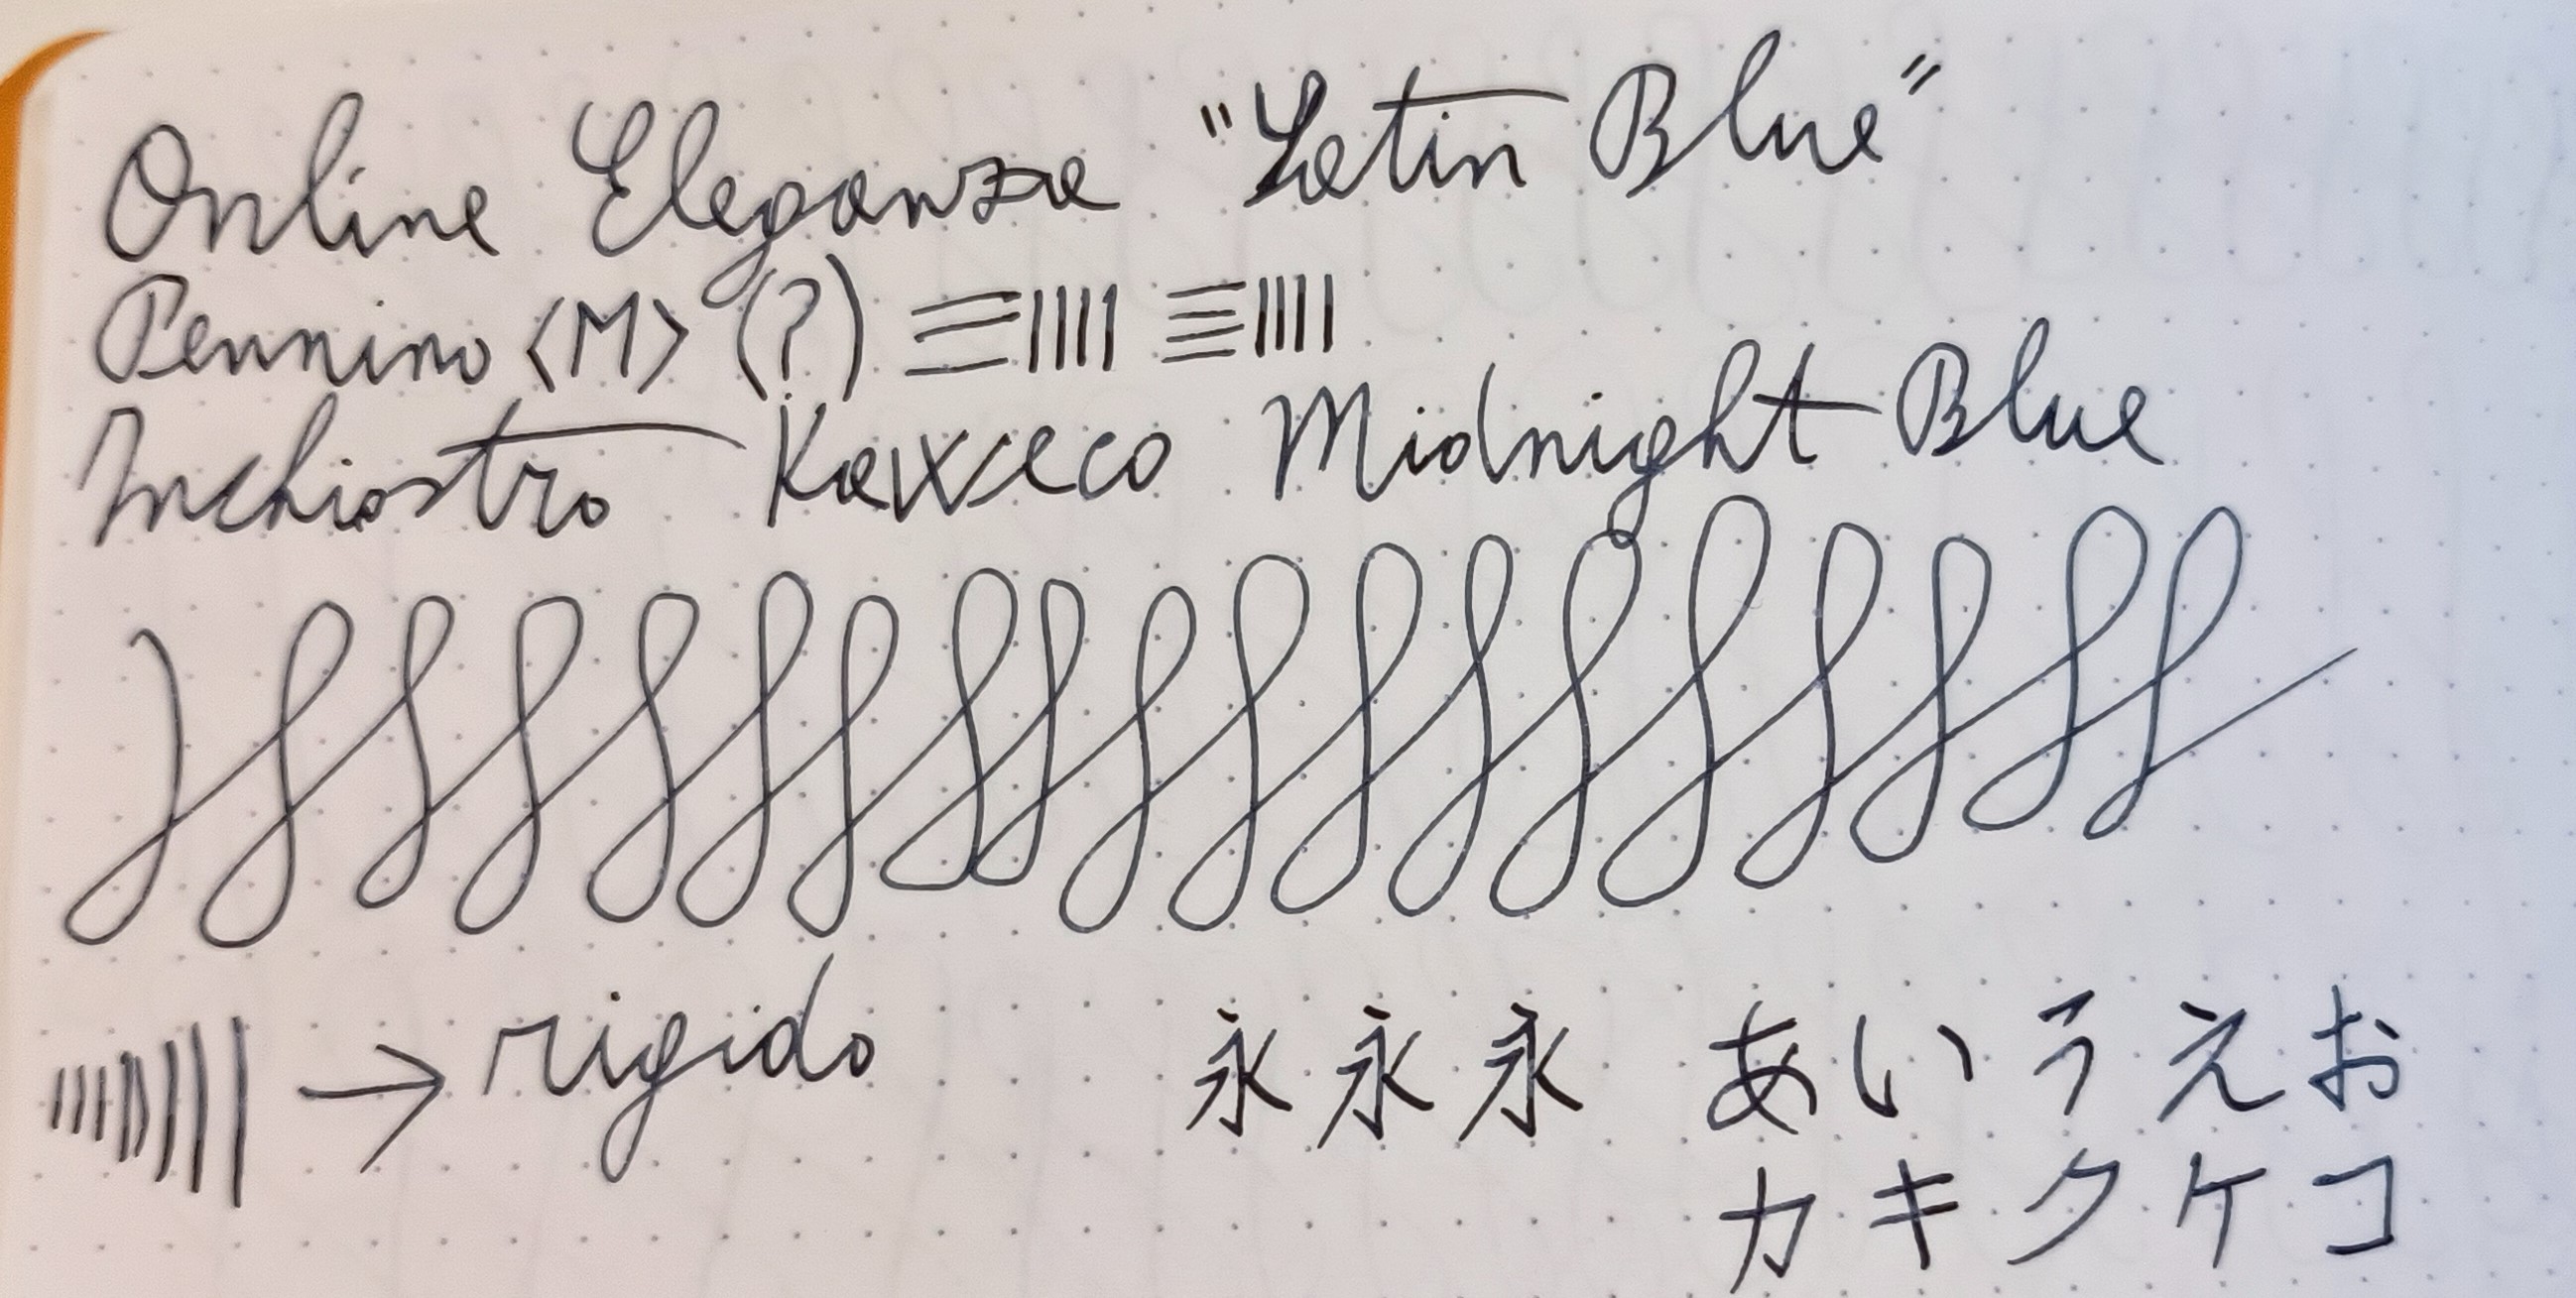 Online Eleganza "Satin Blue"
Pennino <M> (?)
Inchiostro Kaweco Midnight Blue
→ rigido
永永永 あいうえお
カキクケコ